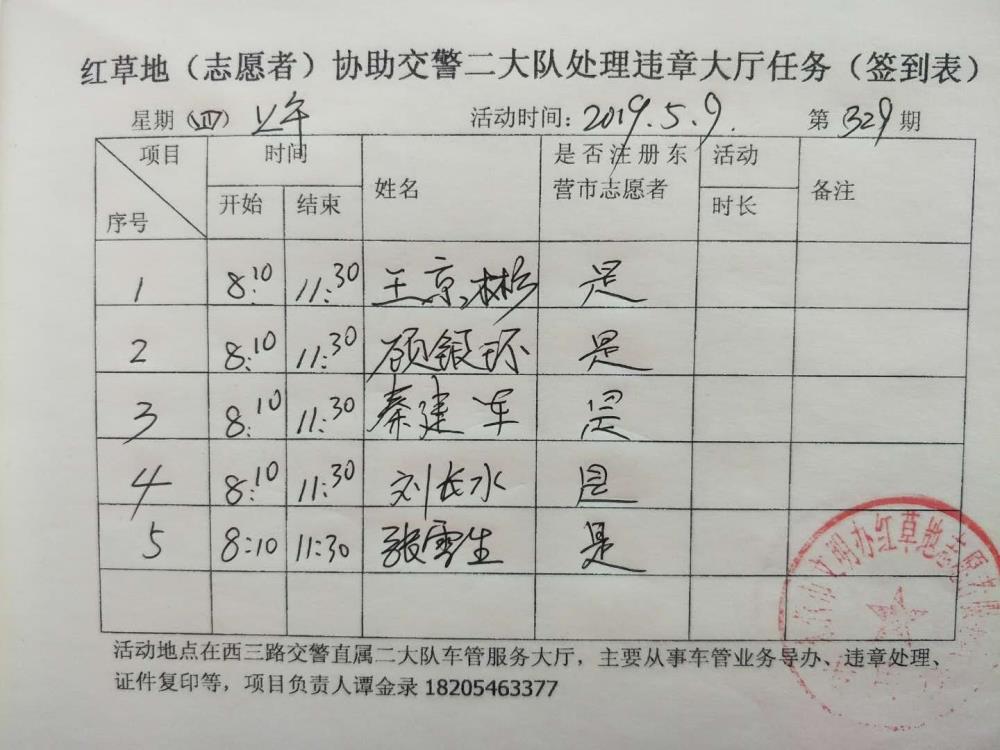 红草地（志愿者）协助交警二大队处理违章大厅任务（签到表）
星期（四）上午 活动时间：2019.5.9. 第329期
项目 时间 姓名 是否注册东营市志愿者 活动时长 备注
序号 开始 结束
1 8:10 11:30 王京彬 是
2 8:10 11:30 顾银环 是
3 8:10 11:30 秦建军 是
4 8:10 11:30 刘长水 是
5 8:10 11:30 张雪生 是
活动地点在西三路交警直属二大队车管服务大厅，主要从事车管业务导办、违章处理、
证件复印等，项目负责人谭金录 18205463377
文明办红草地志愿者